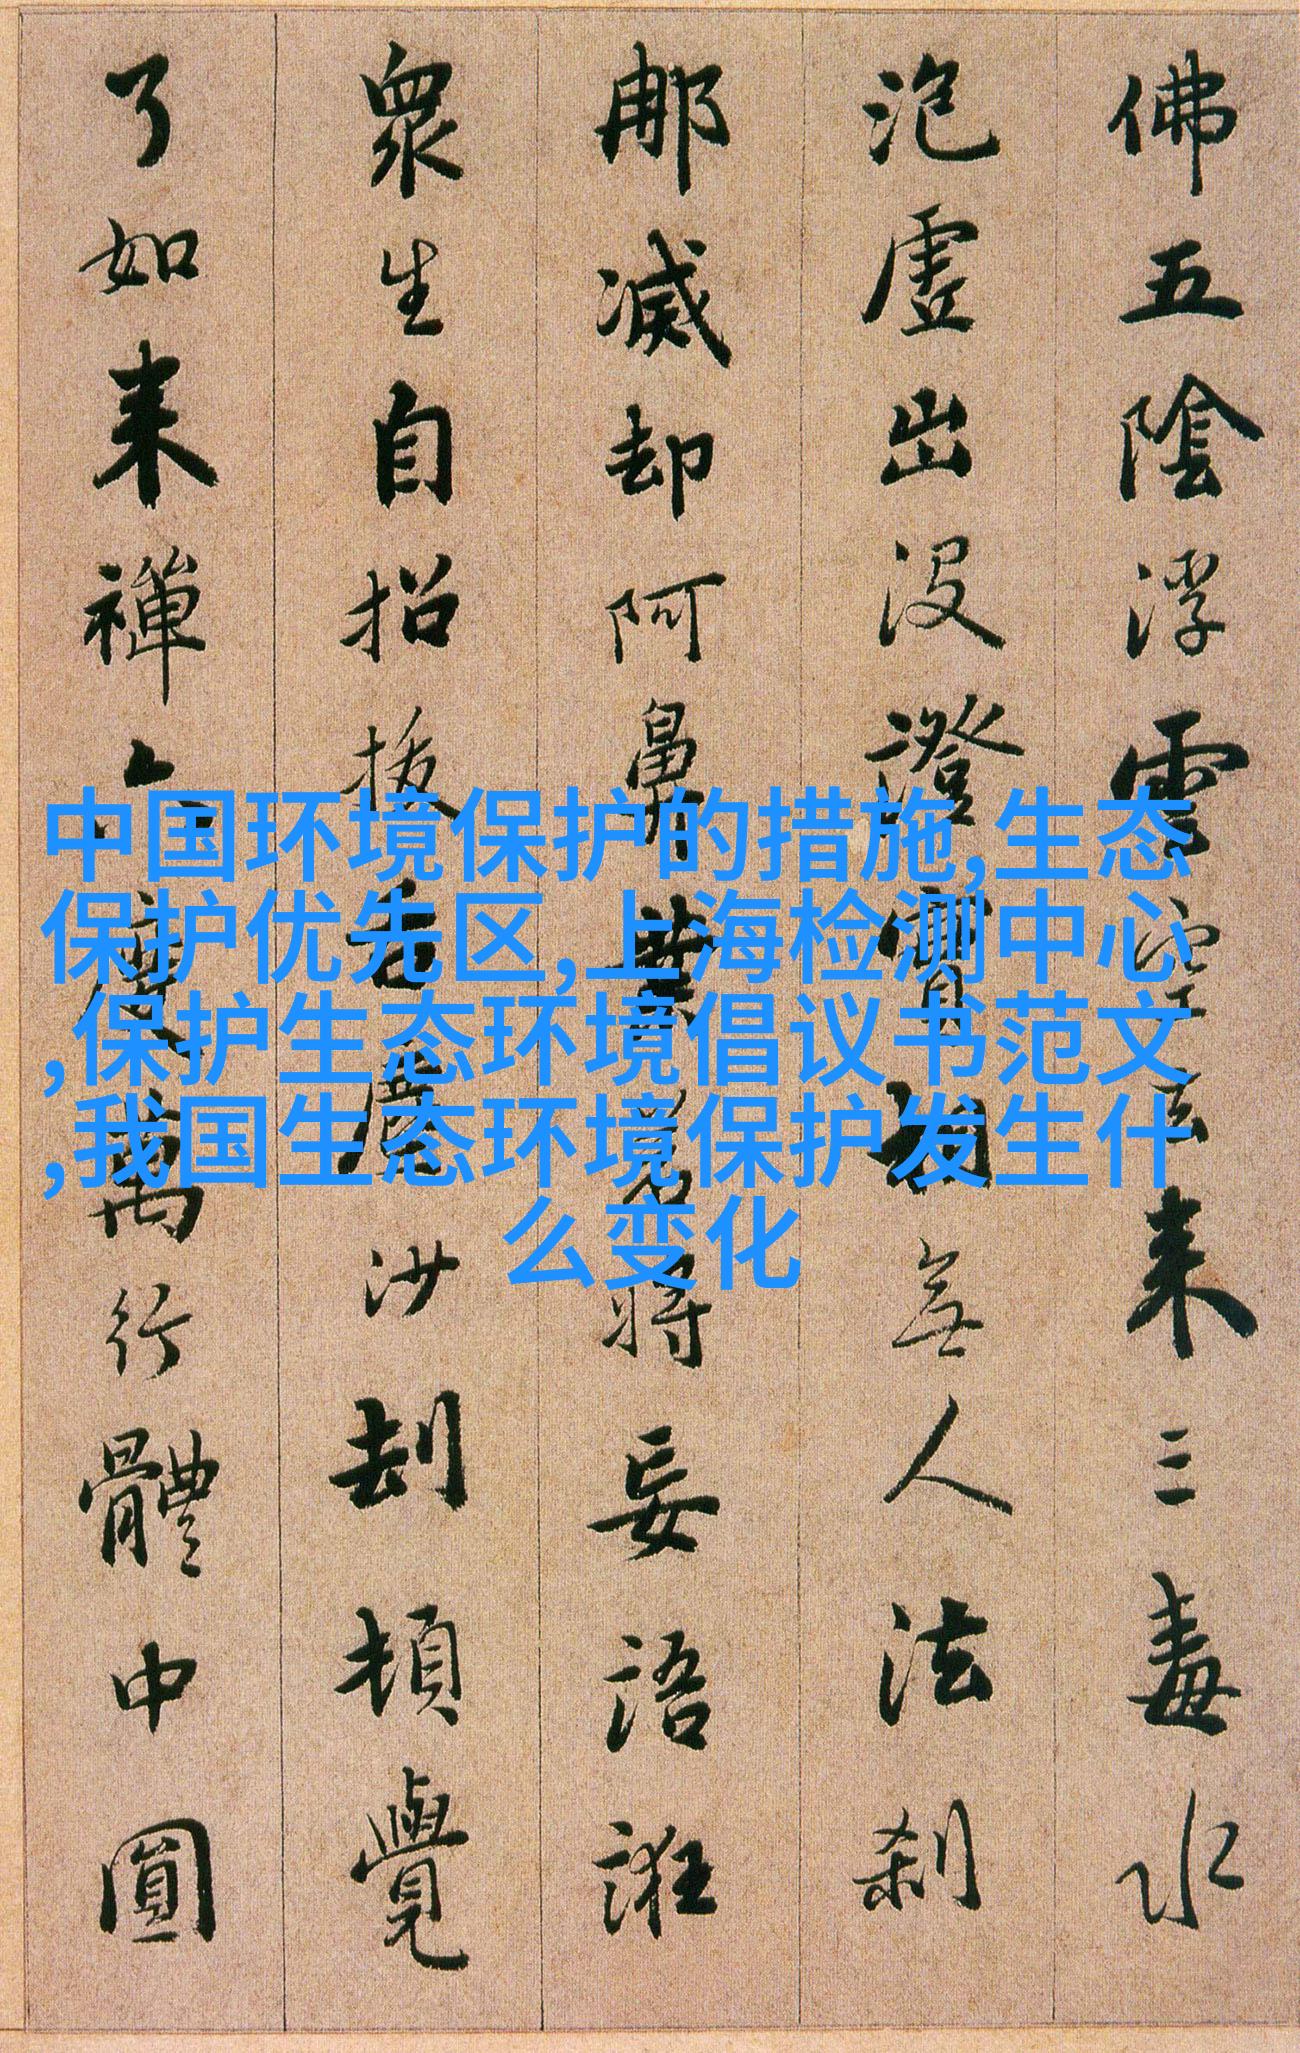 佛五陰浮雲空去来三毒水
泡虛出没證實相無人法刹
那滅却阿鼻業若將妄語誑
衆生自招拔舌塵沙劫頓覺
了如来禪六度萬行體中圓
中国环境保护的措施,生态
保护优先区,上海检测中心
,保护生态环境倡议书范文
,我国生态环境保护发生什
么变化